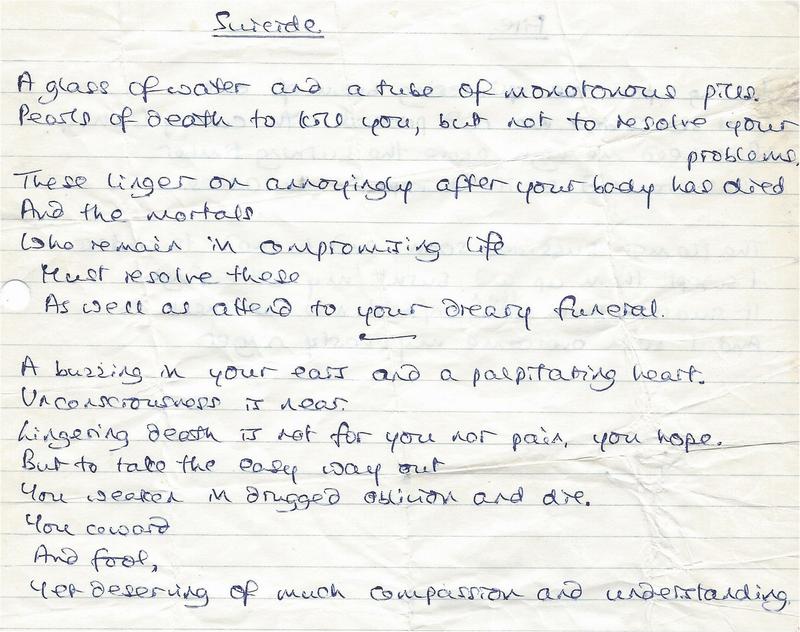 Suicide
A glass of water and a tube of monotonous pills.
Pearls of death to kill you, but not to resolve your
problems.
These linger on annoyingly after your body has died
And the mortals
Who remain in compromising life
Must resolve these
As well as attend to your dreary funeral.
A buzzing in your ears and a palpitating heart.
Unconsciousness is near.
Lingering death is not for you nor pain, you hope.
But to take the easy way out
You weaken in drugged oblivion and die.
You coward
And fool,
Yet deserving of much compassion and understanding.